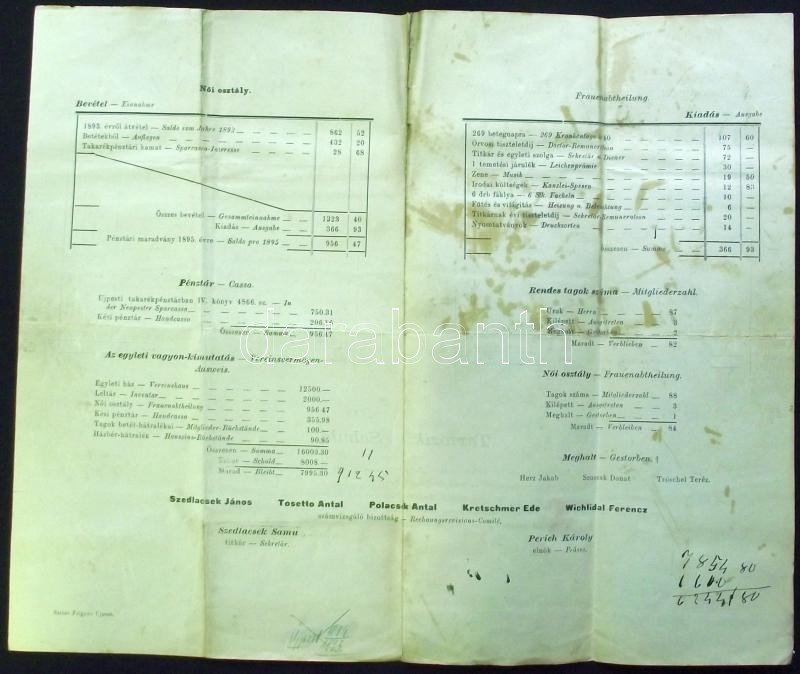 Női osztály.
Bevétel — Einnahme
1893. évről átvétel — Saldo vom Jahre 1893 862 52
Betétekből — Auflagen 432 20
Takarékpénztári kamat — Sparcassa-Interesse 28 68
Összes bevétel — Gesammteinnahme 1323 40
Kiadás — Ausgabe 366 93
Pénztári maradvány 1895. évre — Saldo pro 1895 956 47
Pénztár — Cassa.
Ujpesti takarékpénztárban IV. könyv 4866. sz. — In
der Neupester Sparcassa 750.31
Kézi pénztár — Handcassa 206.16
Összesen — Summa 956.47
Az egyleti vagyon-kimutatás — Vereinsvermögen-
Ausweis.
Egyleti ház — Vereinshaus 12500.—
Leltár — Inventar 2000.—
Női osztály — Frauenabtheilung 956 47
Kézi pénztár — Handcassa 355.98
Tagok betét-hátralékai — Mitglieder-Rückstände 100.—
Házbér-hátralék — Hauszins-Rückstände 90.85
Összesen — Summa 16003.30
— Schuld 8008.—
Marad — Bleibt 7995.30
Frauenabtheilung.
Kiadás — Ausgabe
269 betegnapra — 269 Krankentage 107 60
Orvosi tiszteletdíj — Doctor-Remuneration 75 —
Titkár és egyleti szolga — Sekretär u. Diener 72 —
1 temetési járulék — Leichenprämie 30 —
Zene — Musik 19 50
Irodai költségek — Kanzlei-Spesen 12 83
6 drb fáklya — 6 Stk. Fackeln 10 —
Fütés és világítás — Heizung u. Beleuchtung 6 —
Titkárnak évi tiszteletdíj — Sekretär-Remuneration 20 —
Nyomtatványok — Drucksorten 14 —
összesen — Summa 366 93
Rendes tagok száma — Mitgliederzahl.
Urak — Herrn 87
Kilépett — Ausgetreten 3
Meghalt — Gestorben 2
Maradt — Verblieben 82
Női osztály — Frauenabtheilung.
Tagok száma — Mitgliederzahl 88
Kilépett — Ausgetreten 3
Meghalt — Gestorben 1
Maradt — Verbleiben 84
Meghalt — Gestorben.
Herz Jakab Donat Tröschel Teréz.
Szedlacsek János Tosetto Antal Polacsek Antal Kretschmer Ede Wichlidal Ferencz
számvizsgáló bizottság — Rechnungsrevisions-Comité.
Szedlacsek Samu
titkár — Sekretär.
Perich Károly
elnök — Präses.
7854 80
darabanth